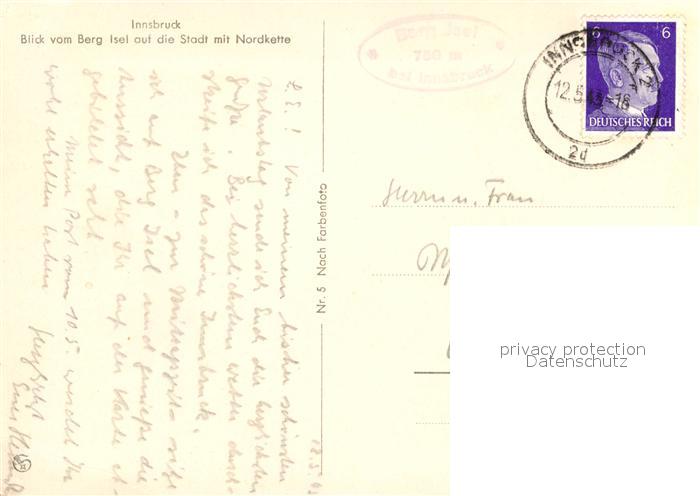 Innsbruck
Blick vom Berg Isel auf die Stadt mit Nordkette
Berg Isel
750 m
bei Innsbruck
INNSBRUCK 2
12.5.43-16
2d
6 6
DEUTSCHES REICH
Nr. 5 Nach Farbenfoto
12.5.43
L. E.! Von meinem bisher schönsten
Urlaubstag sende ich Euch die herzlichsten
Grüße. Bei herrlichstem Wetter durch-
streife ich das schöne Innsbruck.
Eben - zur Mittagszeit - sitze
ich auf Berg Isel und genieße die
Aussicht, die Ihr auf der Karte
gebildet seht.
Meine Post vom 10.5. werdet Ihr
wohl erhalten haben.
Herzlichst
Euer
Herrn u. Frau
privacy protection
Datenschutz